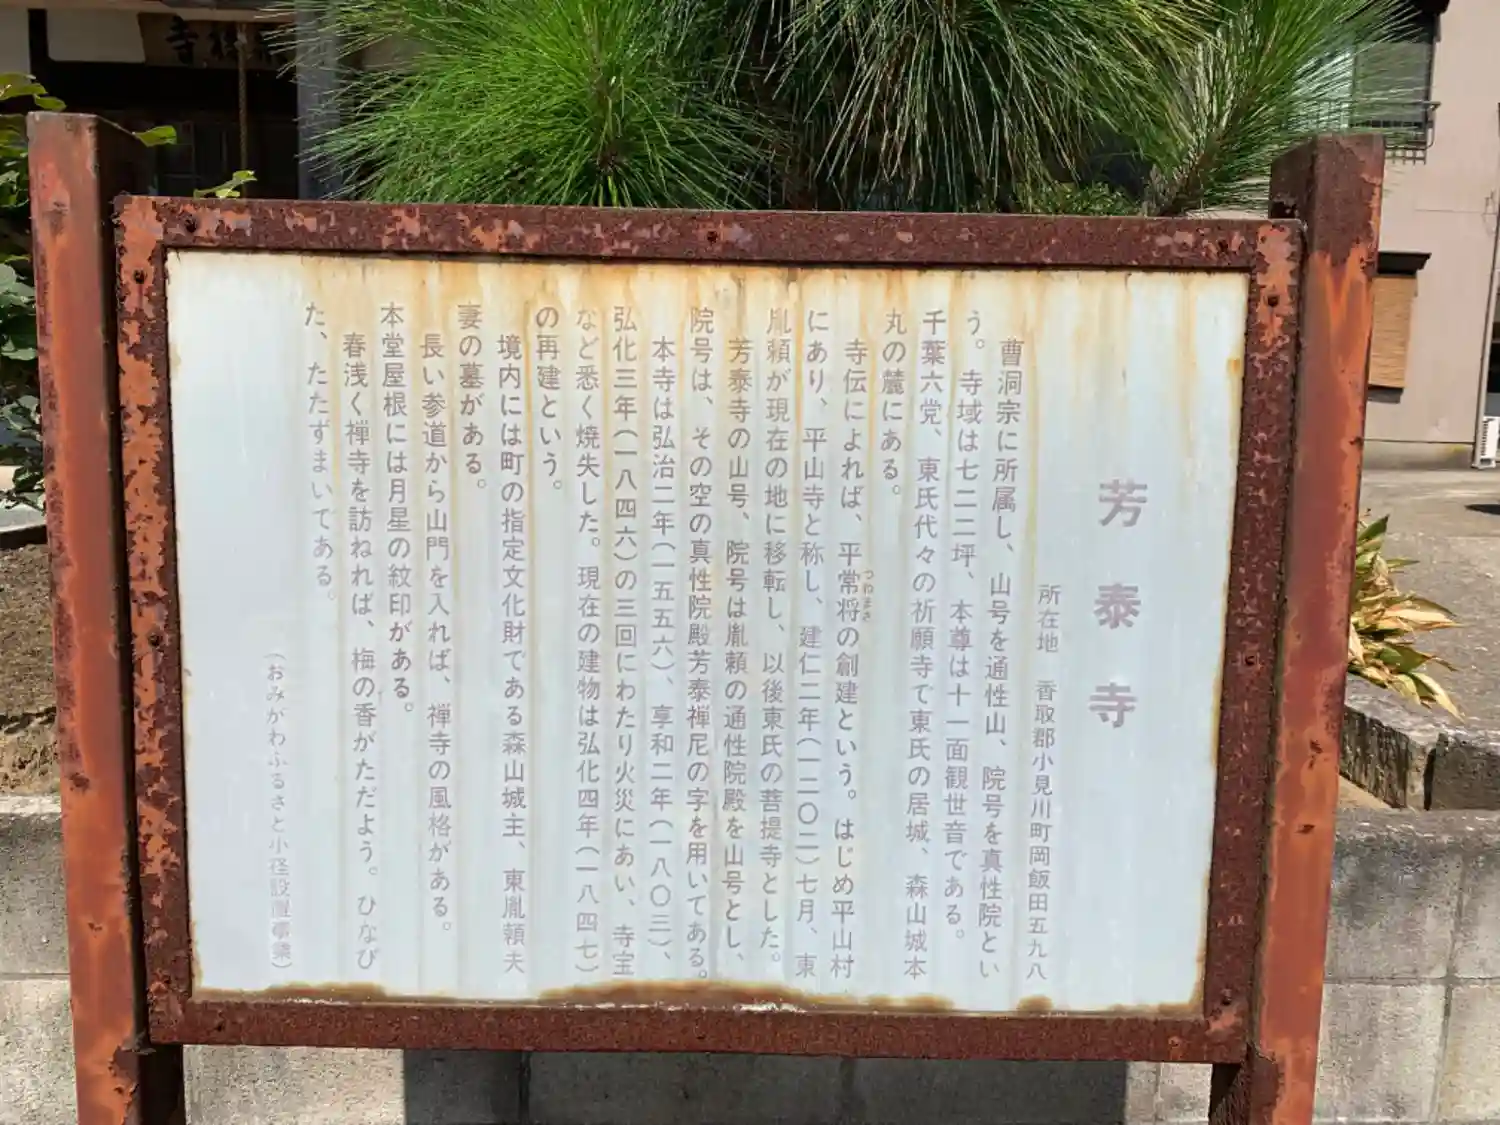 芳泰寺
所在地　香取郡小見川町岡飯田五九八
曹洞宗に所属し、山号を通性山、院号を真性院とい
う。寺域は七二二坪、本尊は十一面観世音である。
千葉六党、東氏代々の祈願寺で東氏の居城、森山城本
丸の麓にある。
寺伝によれば、平常将の創建という。はじめ平山村
つねまさ
にあり、平山寺と称し、建仁二年(一二〇二)七月、東
胤頼が現在の地に移転し、以後東氏の菩提寺とした。
芳泰寺の山号、院号は胤頼の通性院殿を山号とし、
院号は、その空の真性院殿芳泰禅尼の字を用いてある。
本寺は弘治二年(一五五六)、享和二年(一八〇三)、
弘化三年(一八四六)の三回にわたり火災にあい、寺宝
など悉く焼失した。現在の建物は弘化四年(一八四七)
の再建という。
境内には町の指定文化財である森山城主、東胤頼夫
妻の墓がある。
長い参道から山門を入れば、禅寺の風格がある。
本堂屋根には月星の紋印がある。
春浅く禅寺を訪ねれば、梅の香がただよう。ひなび
た、たたずまいてある。
(おみがわふるさと小径設置事業)